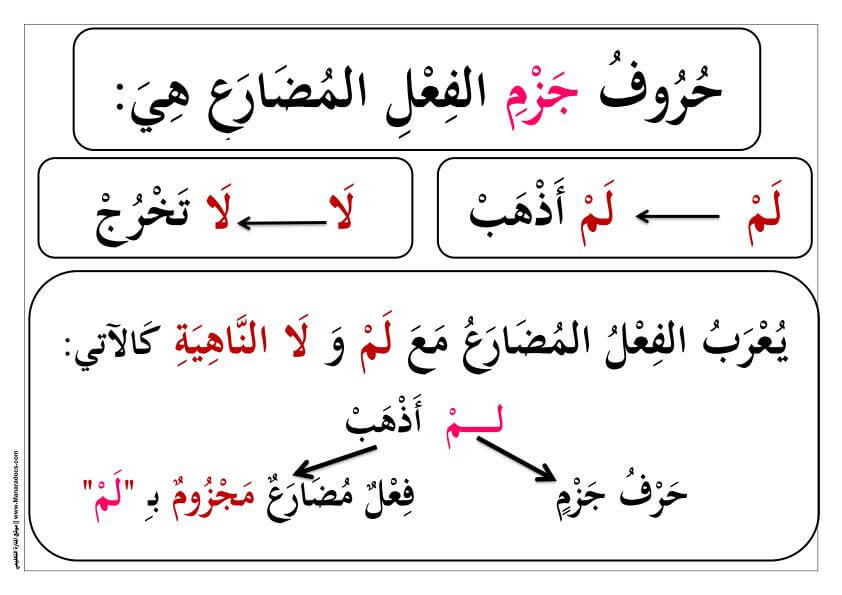 حُرُوفُ جَزْمِ الفِعْلِ المُضَارَعِ هِيَ:
لَمْ ← لَمْ أَذْهَبْ
لَا ← لَا تَخْرُجْ
يُعْرَبُ الفِعْلُ المُضَارَعُ مَعَ لَمْ وَ لَا النَّاهِيَةِ كَالآتي:
لــمْ أَذْهَبْ
حَرْفُ جَزْمٍ
فِعْلٌ مُضَارَعٌ مَجْزُومٌ بِـ "لَمْ"
موقع المنارة التعليمي || www.Manaradocs.com